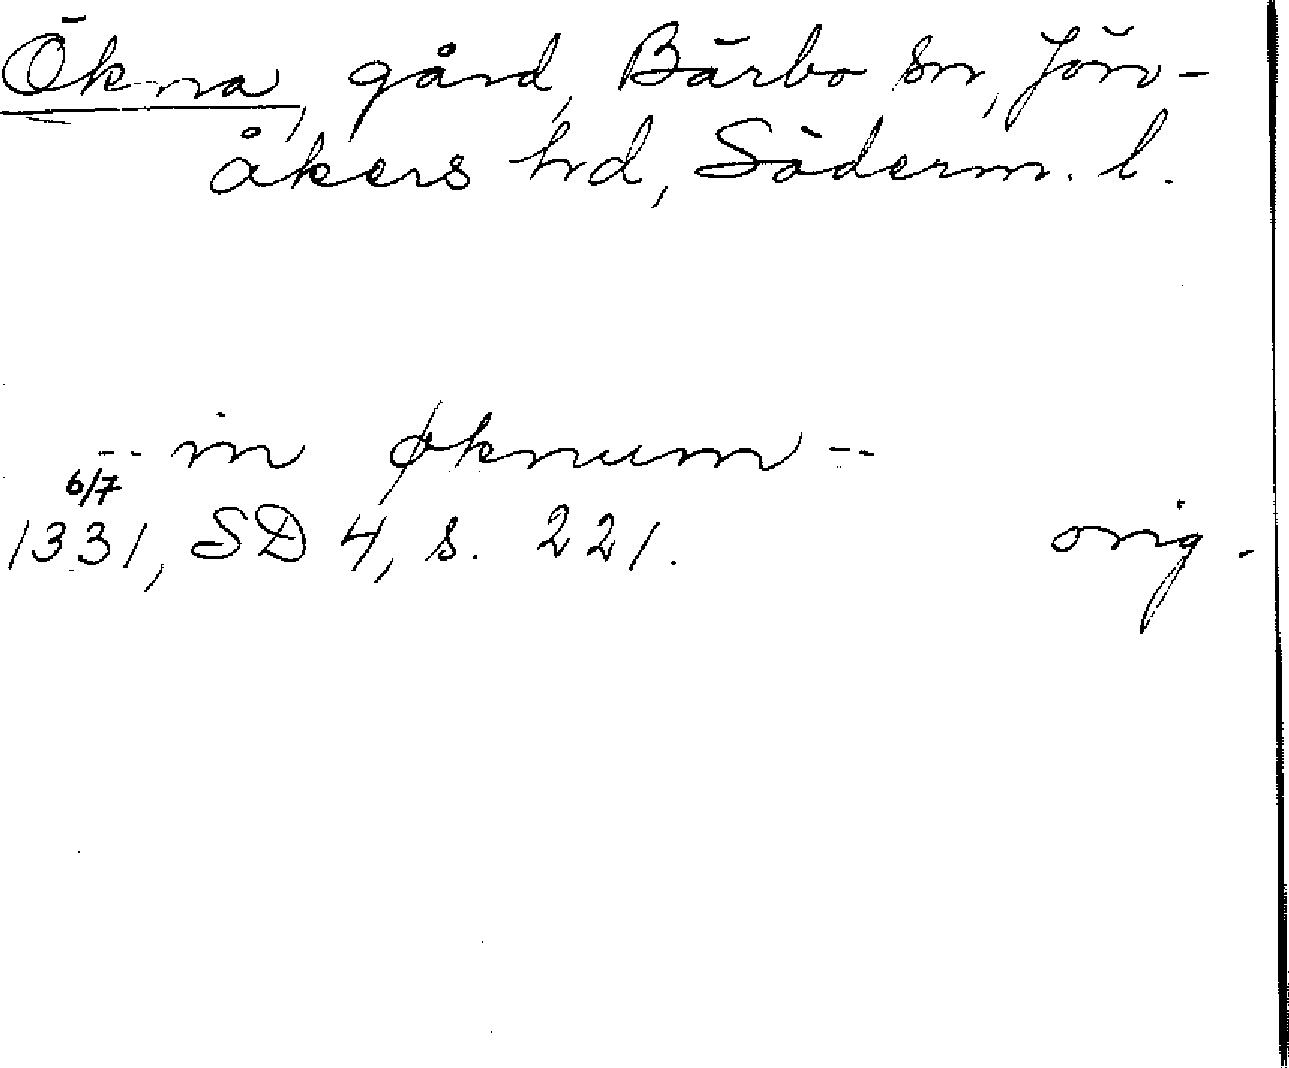 Ökna, gård, Bärbo sn, Jön-
åkers hd, Söderm. l.
-- in øknum --
6/7
1331, SD 4, s. 221. orig.